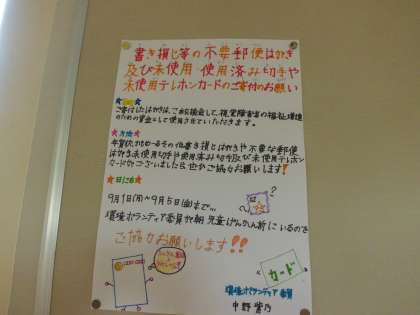 書き損じ等の不要郵便はがき
及び未使用・使用済み切手や
未使用テレホンカードのご寄付のお願い
ご寄付したはがきは、ご転換金して、視覚障害者の福祉増進
のための資金として使用させていただきます。
年賀状かもめーるその他書き損じはがきや不要な郵便
はがき未使用切手や使用済み切手及び未使用テレホン
カードがございましたら、ぜひご協力お願いします!
★日にち
9月1日(月)~9月5日(金)まで…
環境ボランティア委員が朝、児童げんかん前にいるので
ご協力お願いします!!
カード
環境ボランティア委員